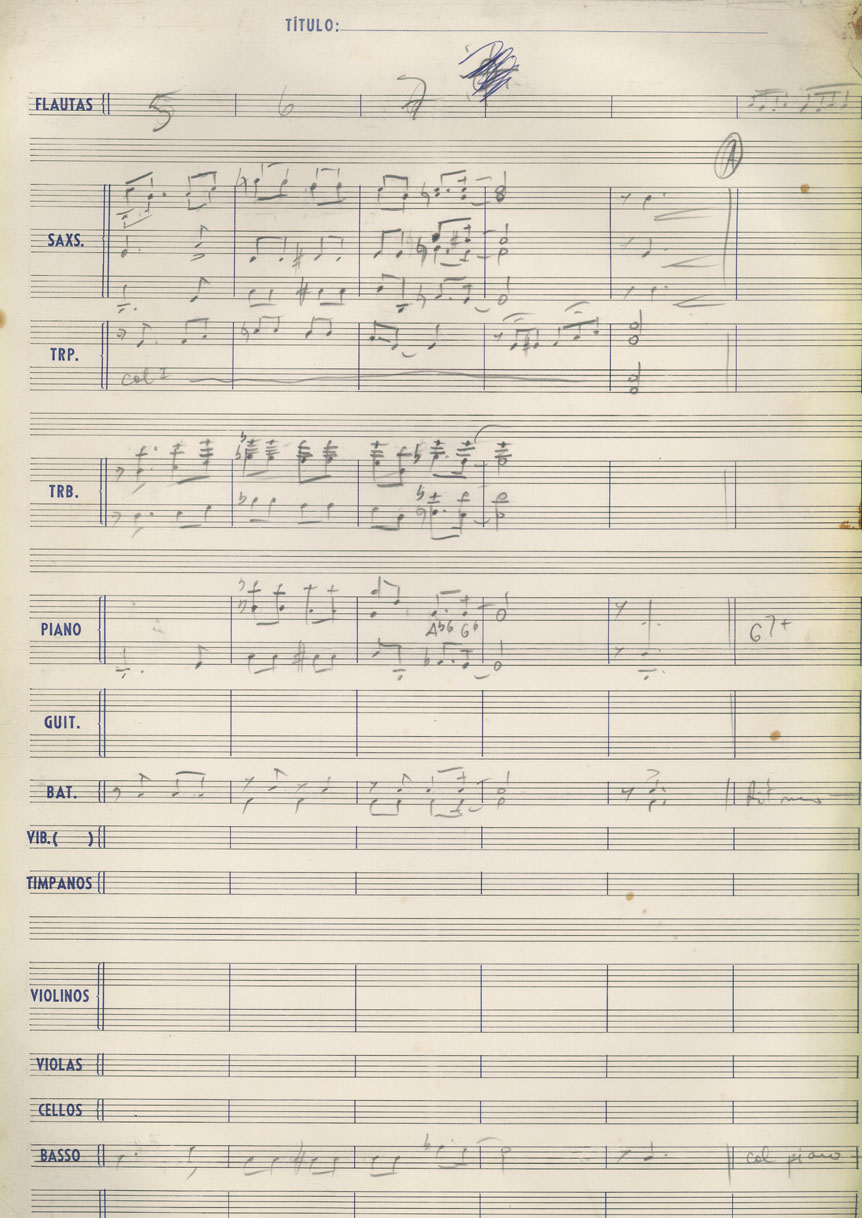 TÍTULO:
FLAUTAS 5 6 7
A
SAXS.
TRP.
col I
TRB.
PIANO
Ab6 G6
G7+
GUIT.
BAT.
Ritmo
VIB.( )
TIMPANOS
VIOLINOS
VIOLAS
CELLOS
BASSO col piano